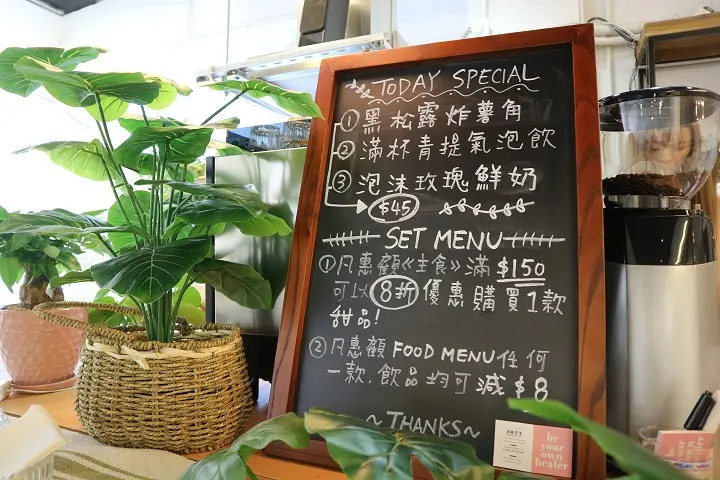 TODAY SPECIAL
① 黑松露炸薯角
② 滿杯青提氣泡飲
③ 泡沫玫瑰鮮奶
$45
SET MENU
① 凡惠顧《主食》滿 $150
可以 8折 優惠購買1款
甜品!
② 凡惠顧 FOOD MENU 任何
一款, 飲品均可減 $8
~ THANKS ~
be
your own
healer